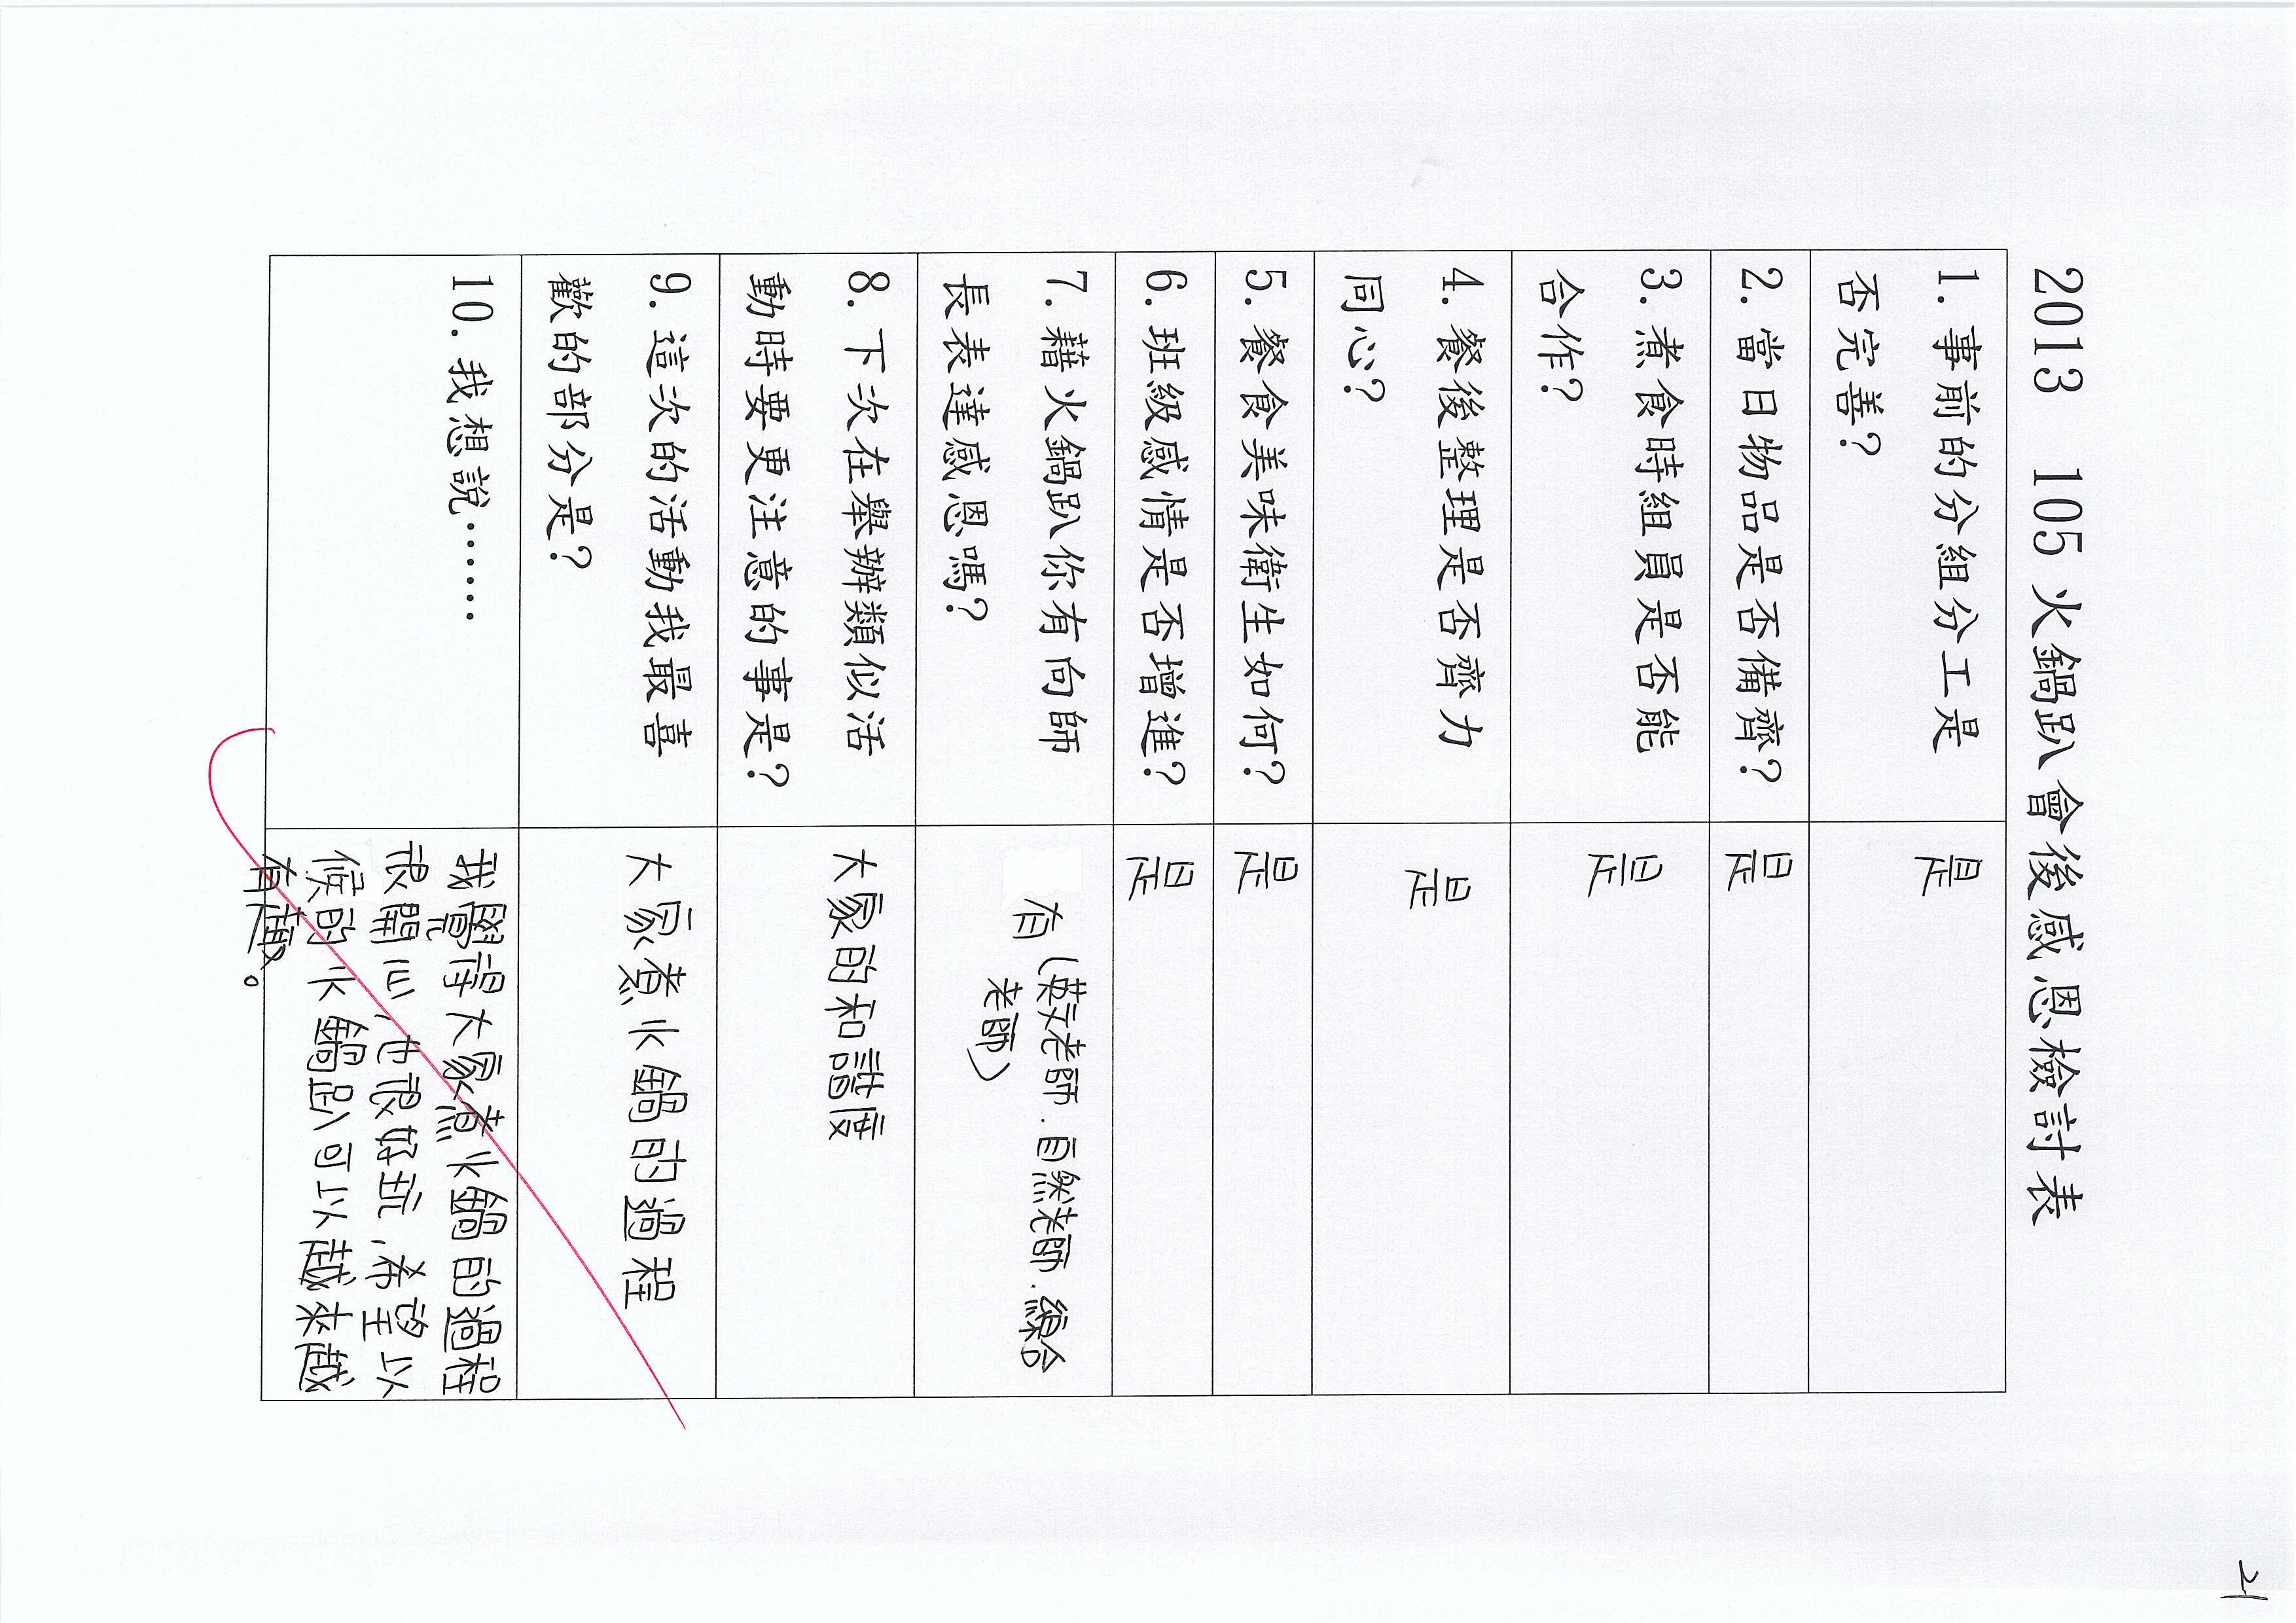 21
2013 105火鍋趴會後感恩檢討表
1. 事前的分組分工是
否完善?
是
2. 當日物品是否備齊?
是
3. 煮食時組員是否能
合作?
是
4. 餐後整理是否齊力
同心?
是
5. 餐食美味衛生如何?
是
6. 班級感情是否增進?
是
7. 藉火鍋趴你有向師
長表達感恩嗎?
有(英文老師.自然老師.綜合
老師)
8. 下次在舉辦類似活
動時要更注意的事是?
大家的和諧度
9. 這次的活動我最喜
歡的部分是?
大家煮火鍋的過程
10. 我想說……..
我覺得大家煮火鍋的過程
很開心,也很好玩,希望以
候的火鍋趴可以越來越
有趣。